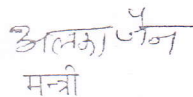 अलका जैन
मन्त्री